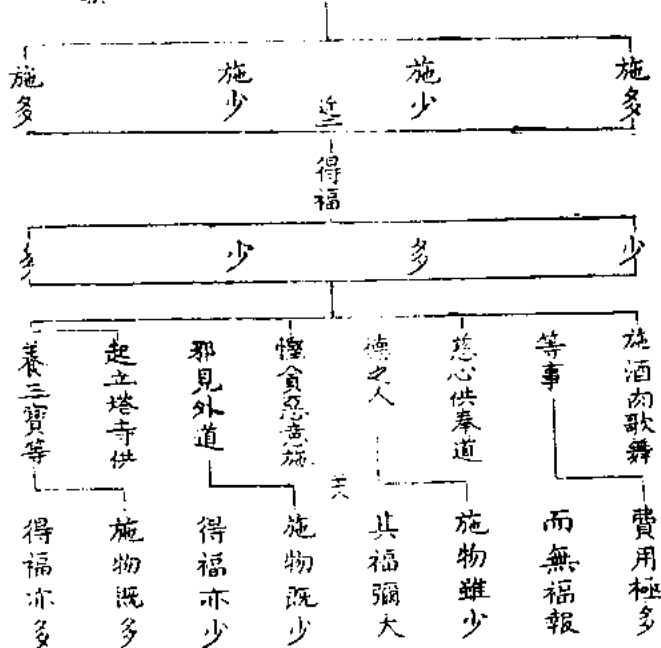 施多
施少
施少
施多
得福
少
多
少
多
施酒肉歌舞
等事
慈心供奉道
德之人
慳貪惡意施
邪見外道
起立塔寺供
養三寶等
費用極多
而無福報
施物雖少
其福彌大
施物既少
得福亦少
施物既多
得福亦多